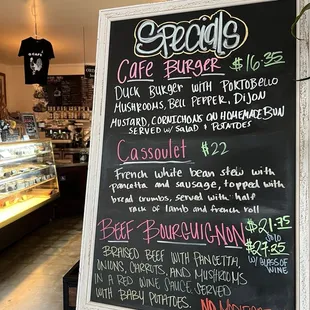 Specials
Cafe Burger $16.35
Duck Burger with Portobello
Mushrooms, Bell Pepper, Dijon
Mustard, Cornichons on Homemade Bun
Served w/ Salad & Potatoes
Cassoulet $22
French white bean stew with
pancetta and sausage, topped with
bread crumbs, served with half
rack of lamb and french roll
Beef Bourguignon $21.75
Solo
$27.25
w/ Glass of
Wine
Braised beef with pancetta,
onions, carrots, and mushrooms
in a red wine sauce served
with baby potatoes.